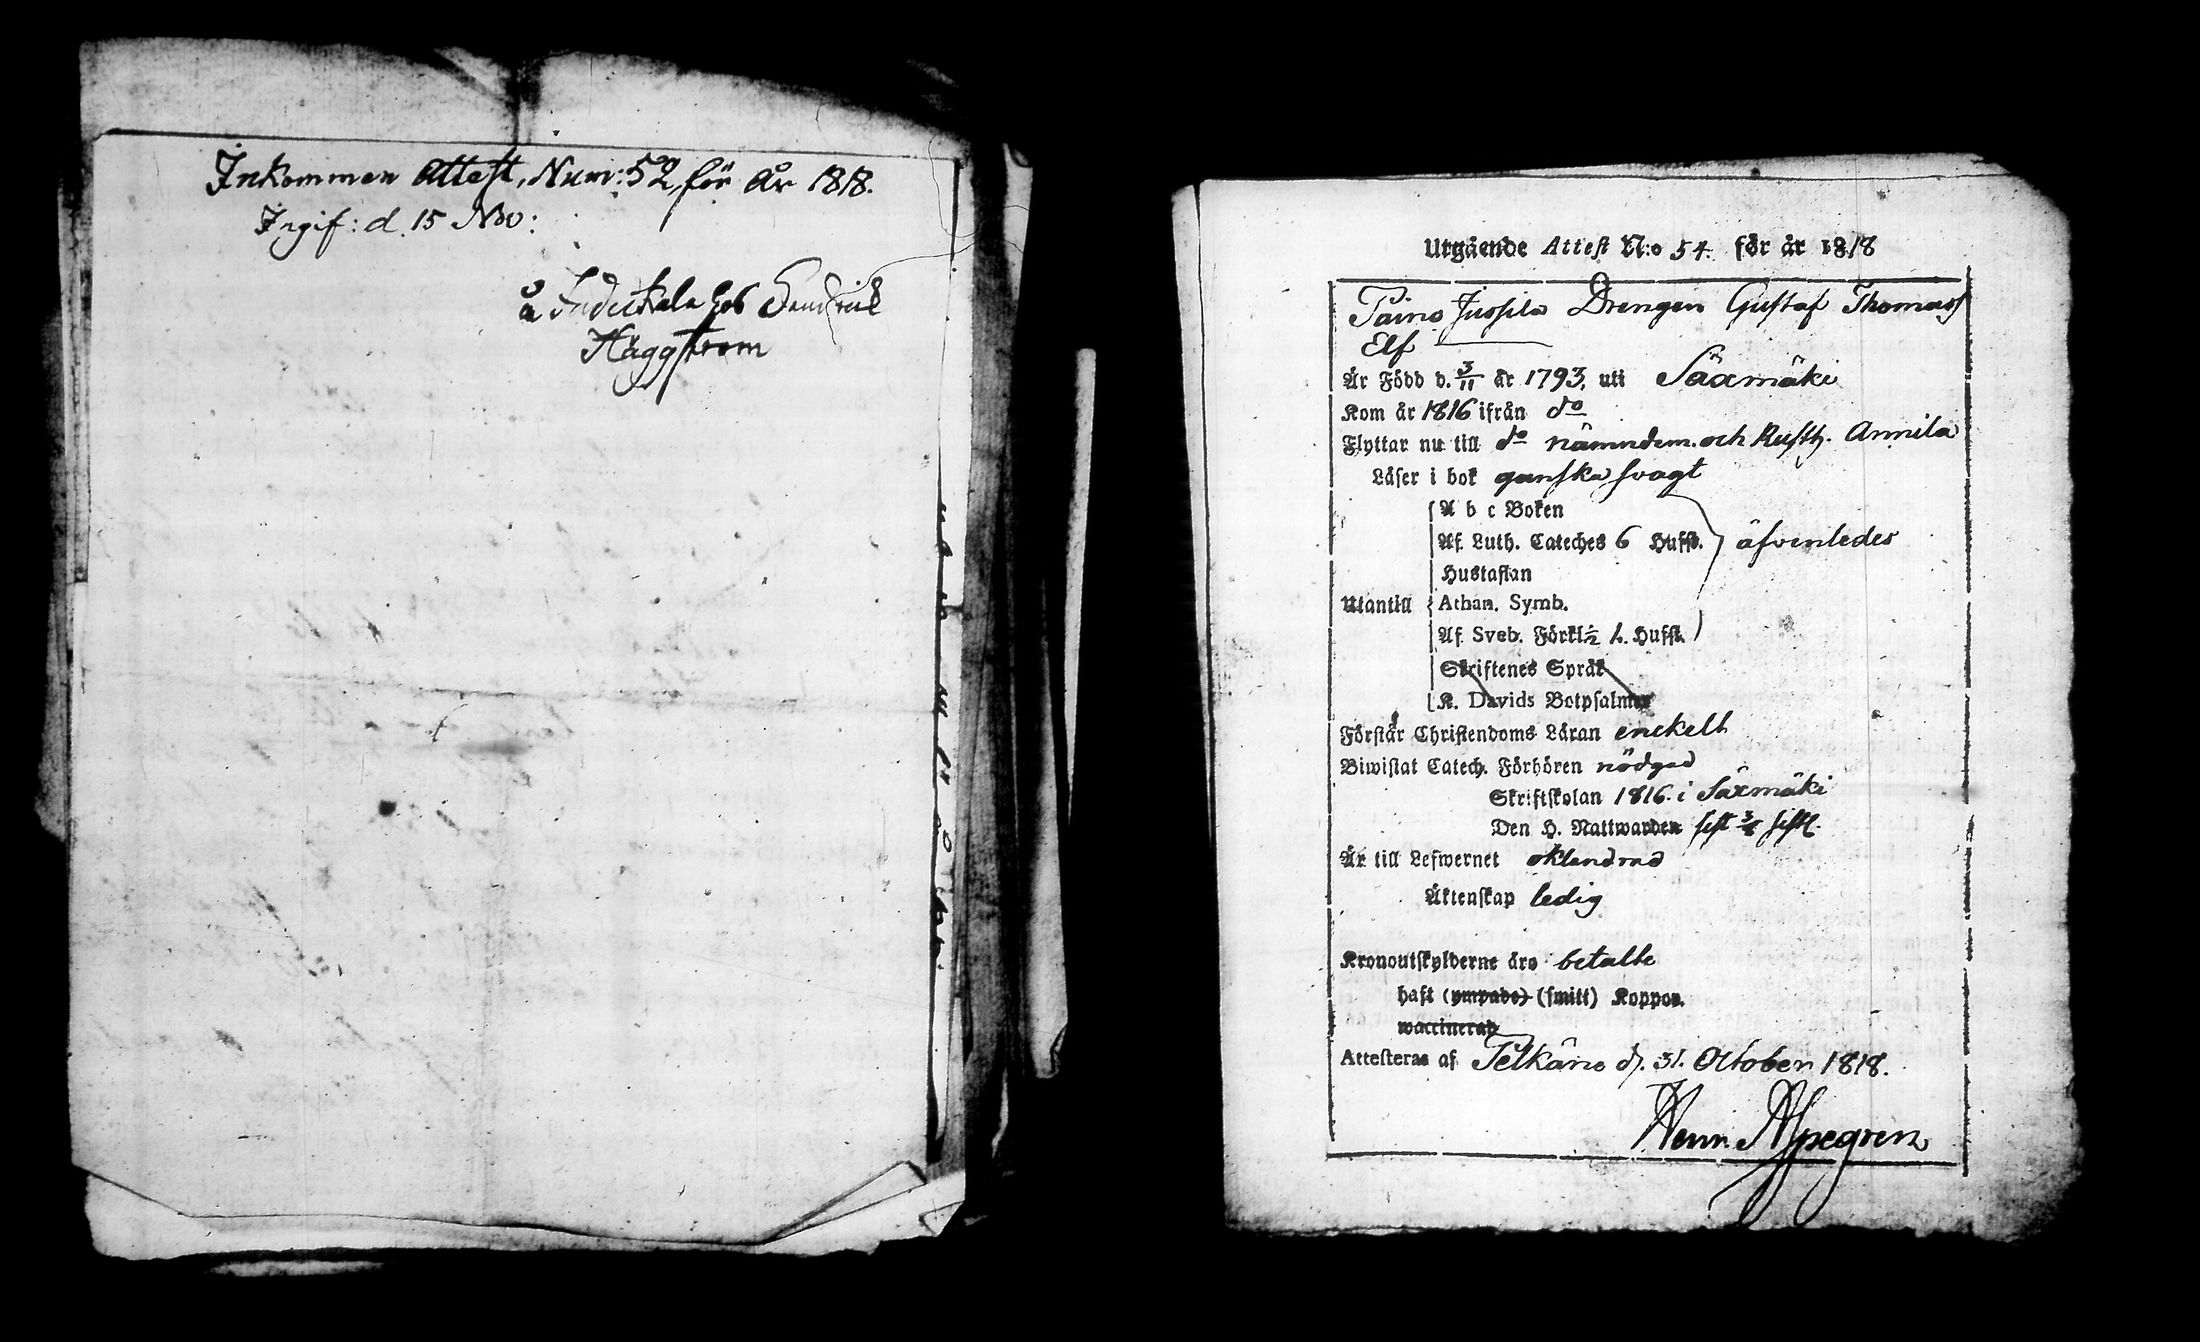 Inkommen Attest, Num: 52, för År 1818.
Ingif: d. 15 Nov:
å hos Hendrick
Häggstrom
Utgående Attest N:o 54. för år 1818
Jussila Drengen Gustaf Thomass
Elf
Är Född d. 3/11 år 1793, uti Säxmäki
Kom år 1816 ifrån do
Flyttar nu till do nämndem. och Rusth. Annila
Läser i bok ganska svagt
A b c Boken
Af Luth. Cateches 6 Hufst. äfvenledes
Hustaflan
Utantill Athan. Symb.
Af Sveb. Förkl. 1/2 h. Hufst.
Skriftenes Språk
K. Davids Botpsalmer
Förstår Christendoms Läran enckelt
Biwistat Catech. Förhören nödgad
Skriftskolan 1816. i Säxmäki
Den H. Nattwarden sist
Är till Lefwernet oklandrad
Äktenskap ledig
Kronoutskylderne äro betalte
haft (ympade) (smitt) Koppor.
waccinerad
Attesteras af Pelkäne d. 31. October 1818.
Henr. Alpegren